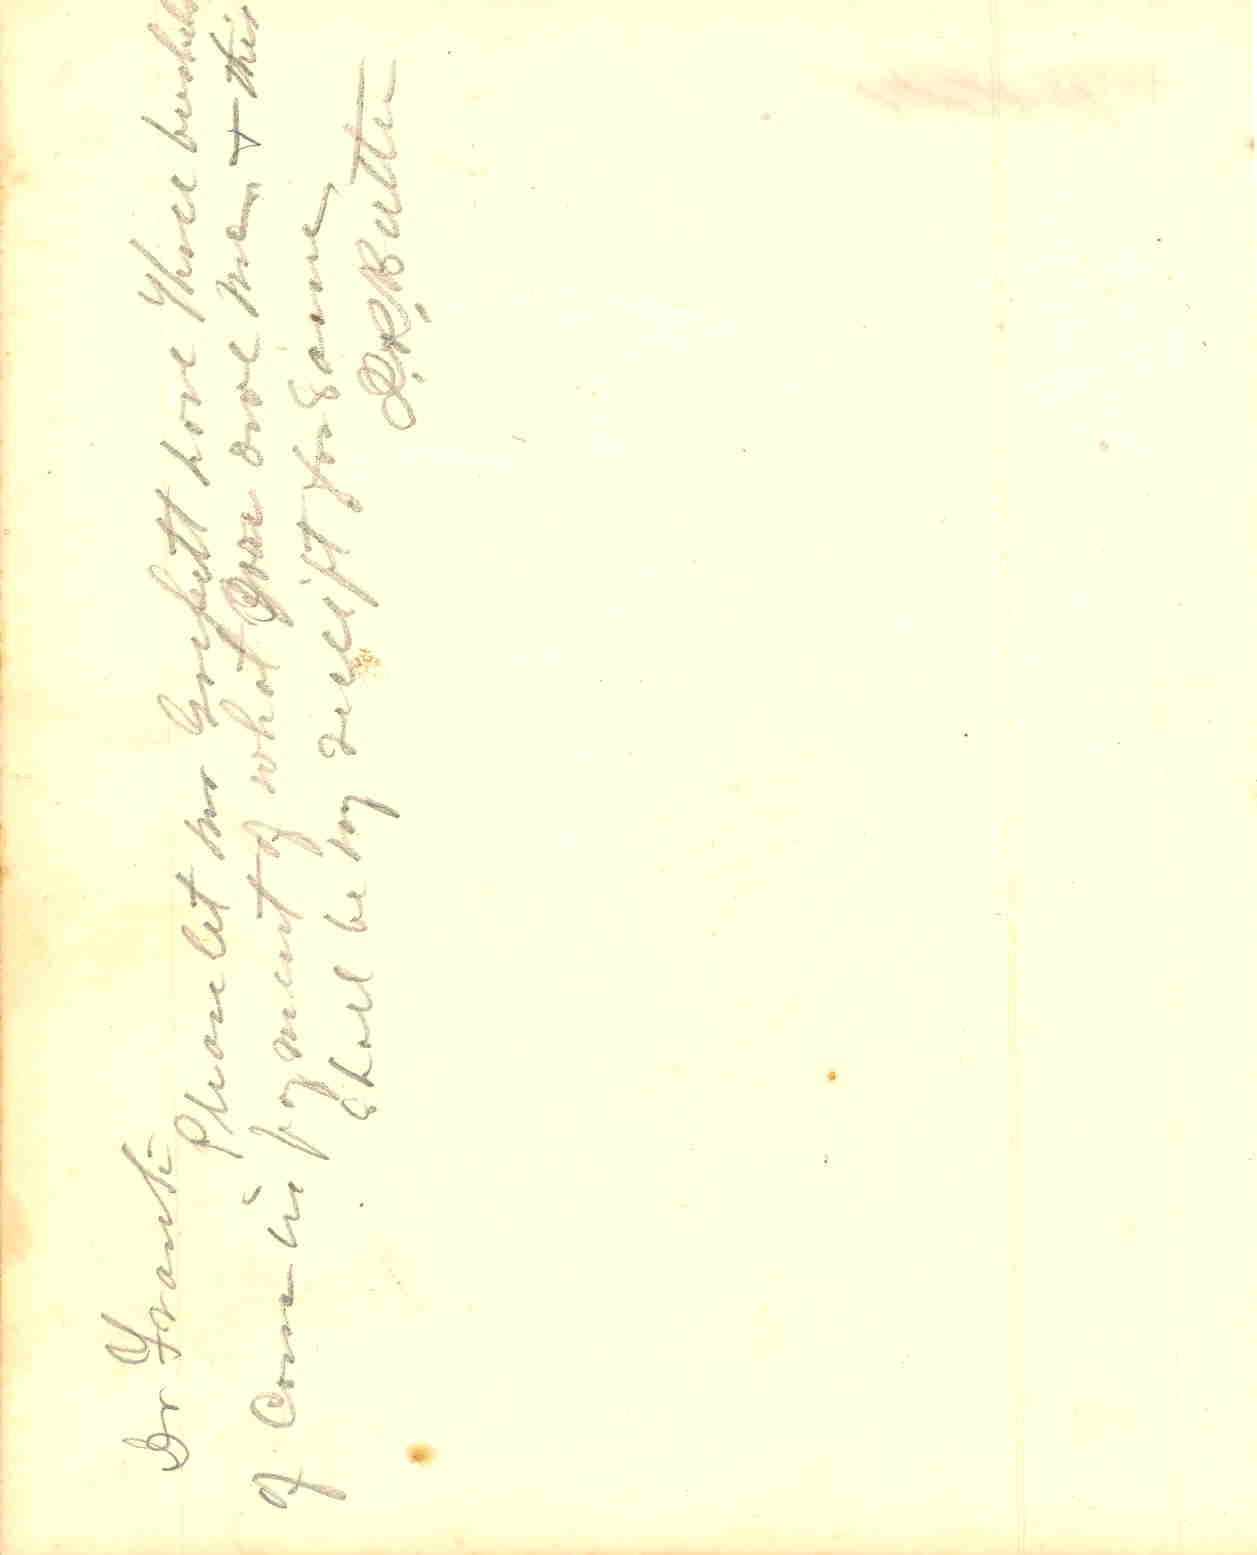 Dr Frank
Please let mr have three bushels
of Corn in payment of what you owe me, & this
shall be my receipt for same,
R. Butler